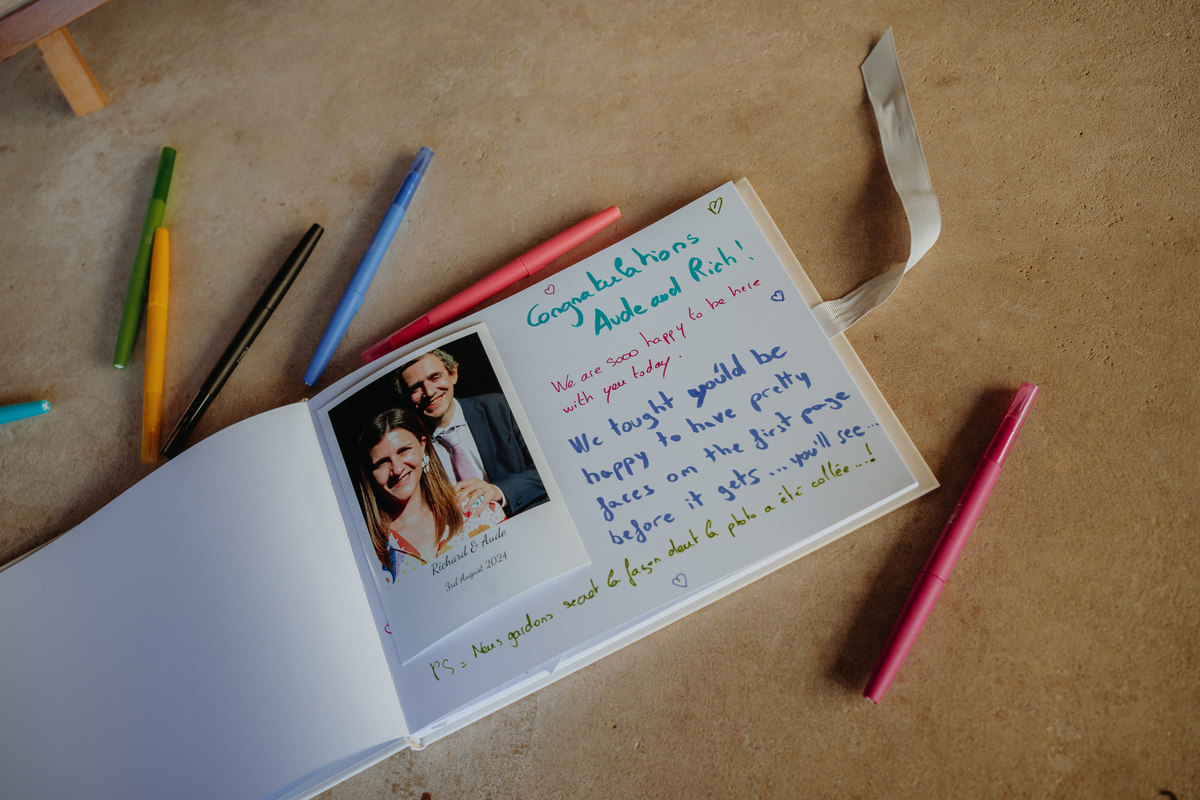 Congratulations
Aude and Rich!
We are sooo happy to be here
with you today.
We tought you'ld be
happy to have pretty
faces on the first page
before it gets... you'll see...
PS = Nous gardons secret la façon dont la photo a été collée...!
Richard & Aude
3rd August 2024